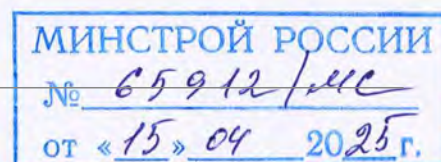 МИНСТРОЙ РОССИИ
№ 65912/МС
от «15» 04 2025 г.